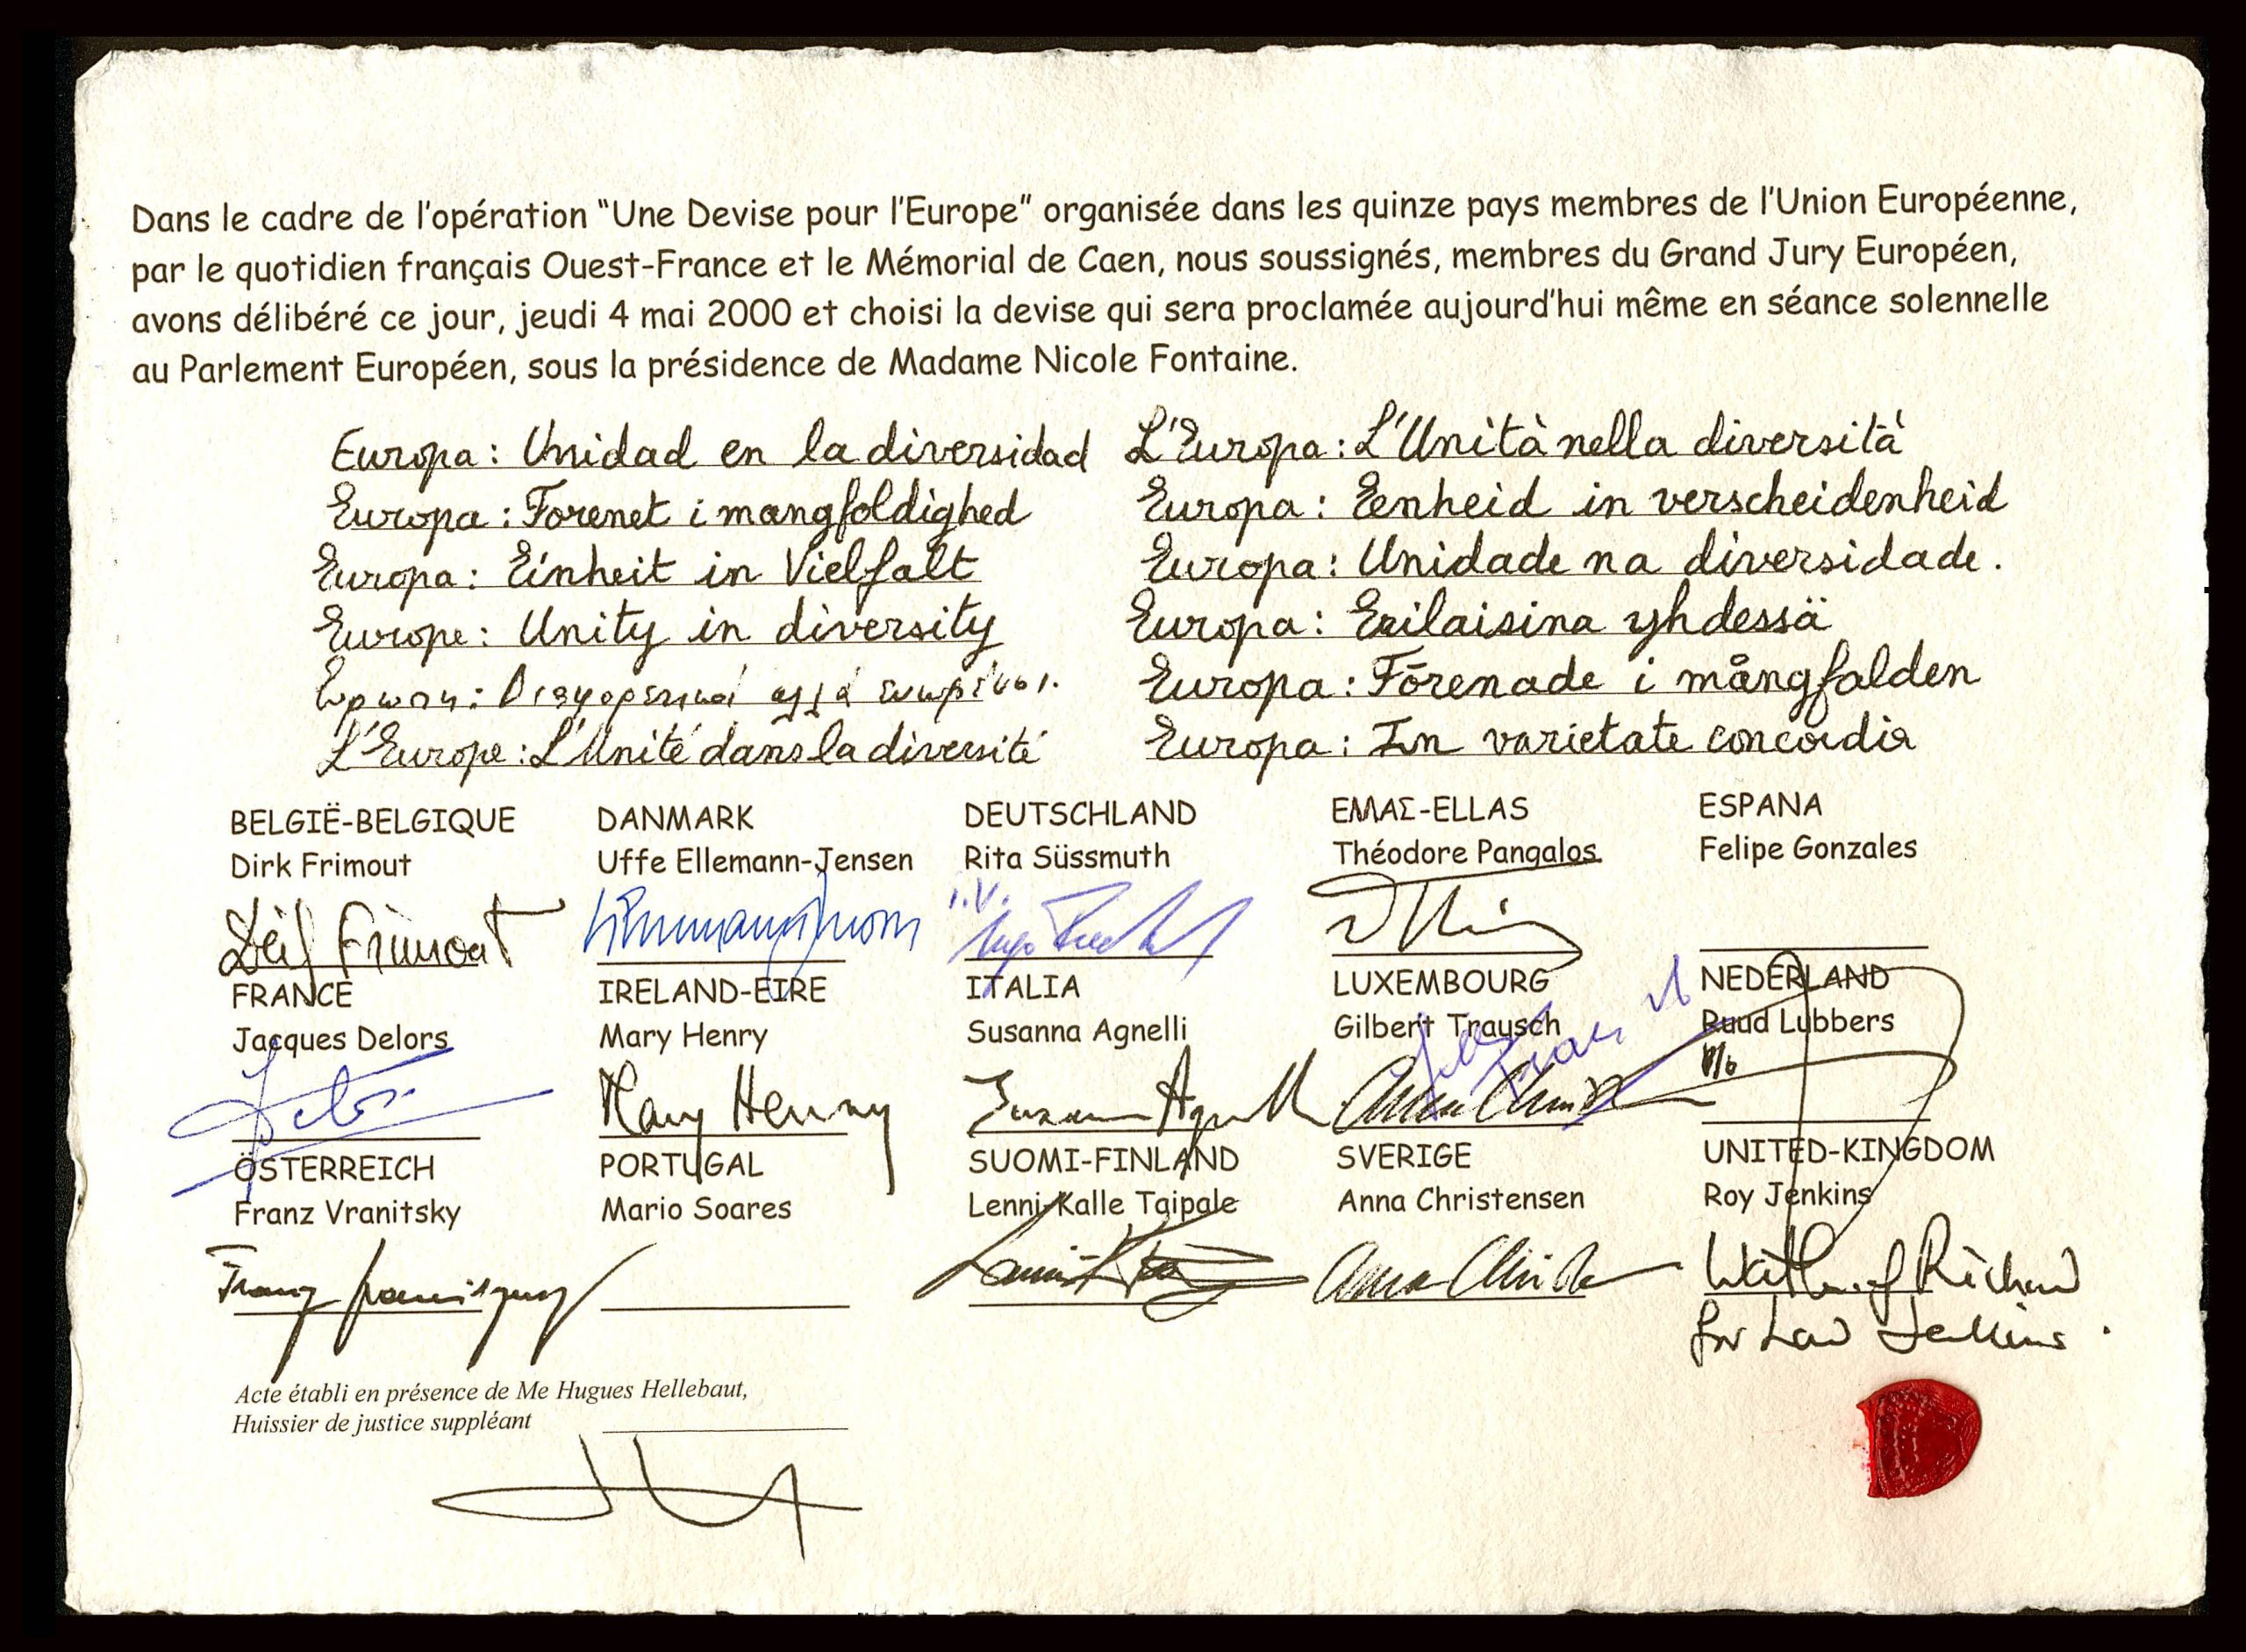 Dans le cadre de l'opération "Une Devise pour l'Europe" organisée dans les quinze pays membres de l'Union Européenne,
par le quotidien français Ouest-France et le Mémorial de Caen, nous soussignés, membres du Grand Jury Européen,
avons délibéré ce jour, jeudi 4 mai 2000 et choisi la devise qui sera proclamée aujourd'hui même en séance solennelle
au Parlement Européen, sous la présidence de Madame Nicole Fontaine.
Europa : Unidad en la diversidad
Europa : Forenet i mangfoldighed
Europa : Einheit in Vielfalt
Europe : Unity in diversity
L'Europe : L'Unité dans la diversité
L'Europa : L'Unità nella diversità
Europa : Eenheid in verscheidenheid
Europa : Unidade na diversidade.
Europa : Erilaisina yhdessä
Europa : Förenade i mångfalden
Europa : In varietate concordia
BELGIË-BELGIQUE DANMARK DEUTSCHLAND ΕΛΛΑΣ-ELLAS ESPANA
Dirk Frimout Uffe Ellemann-Jensen Rita Süssmuth Théodore Pangalos Felipe Gonzales
Frimout i.V.
FRANCE IRELAND-EIRE ITALIA LUXEMBOURG NEDERLAND
Jacques Delors Mary Henry Susanna Agnelli Gilbert Trausch Ruud Lubbers
Delors Mary Henry
ÖSTERREICH PORTUGAL SUOMI-FINLAND SVERIGE UNITED-KINGDOM
Franz Vranitsky Mario Soares Lenni-Kalle Taipale Anna Christensen Roy Jenkins
Franz
for Lord Jenkins.
Acte établi en présence de Me Hugues Hellebaut,
Huissier de justice suppléant